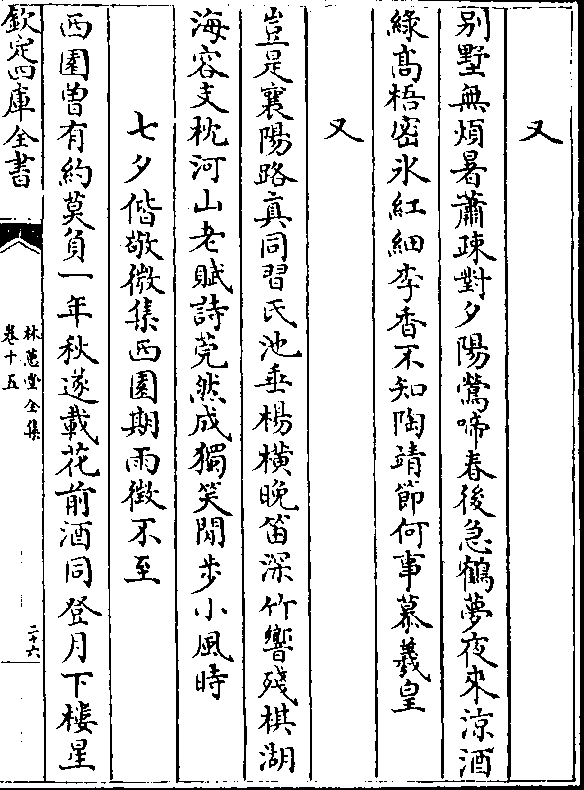 又
别墅無煩暑蕭疎對夕陽鶯啼春後急鶴夢夜來涼酒
綠髙梧密氷紅細李香不知陶靖節何事慕羲皇
又
豈是襄陽路真同習氏池垂楊橫晚笛深竹響殘棋湖
海容支枕河山老賦詩莞然成獨笑閒步小風時
七夕偕敬微集西園期雨徴不至
西園曽有約莫負一年秋遂載花前酒同登月下樓星
欽定四庫全書
林蕙堂全集
卷十五
二十六